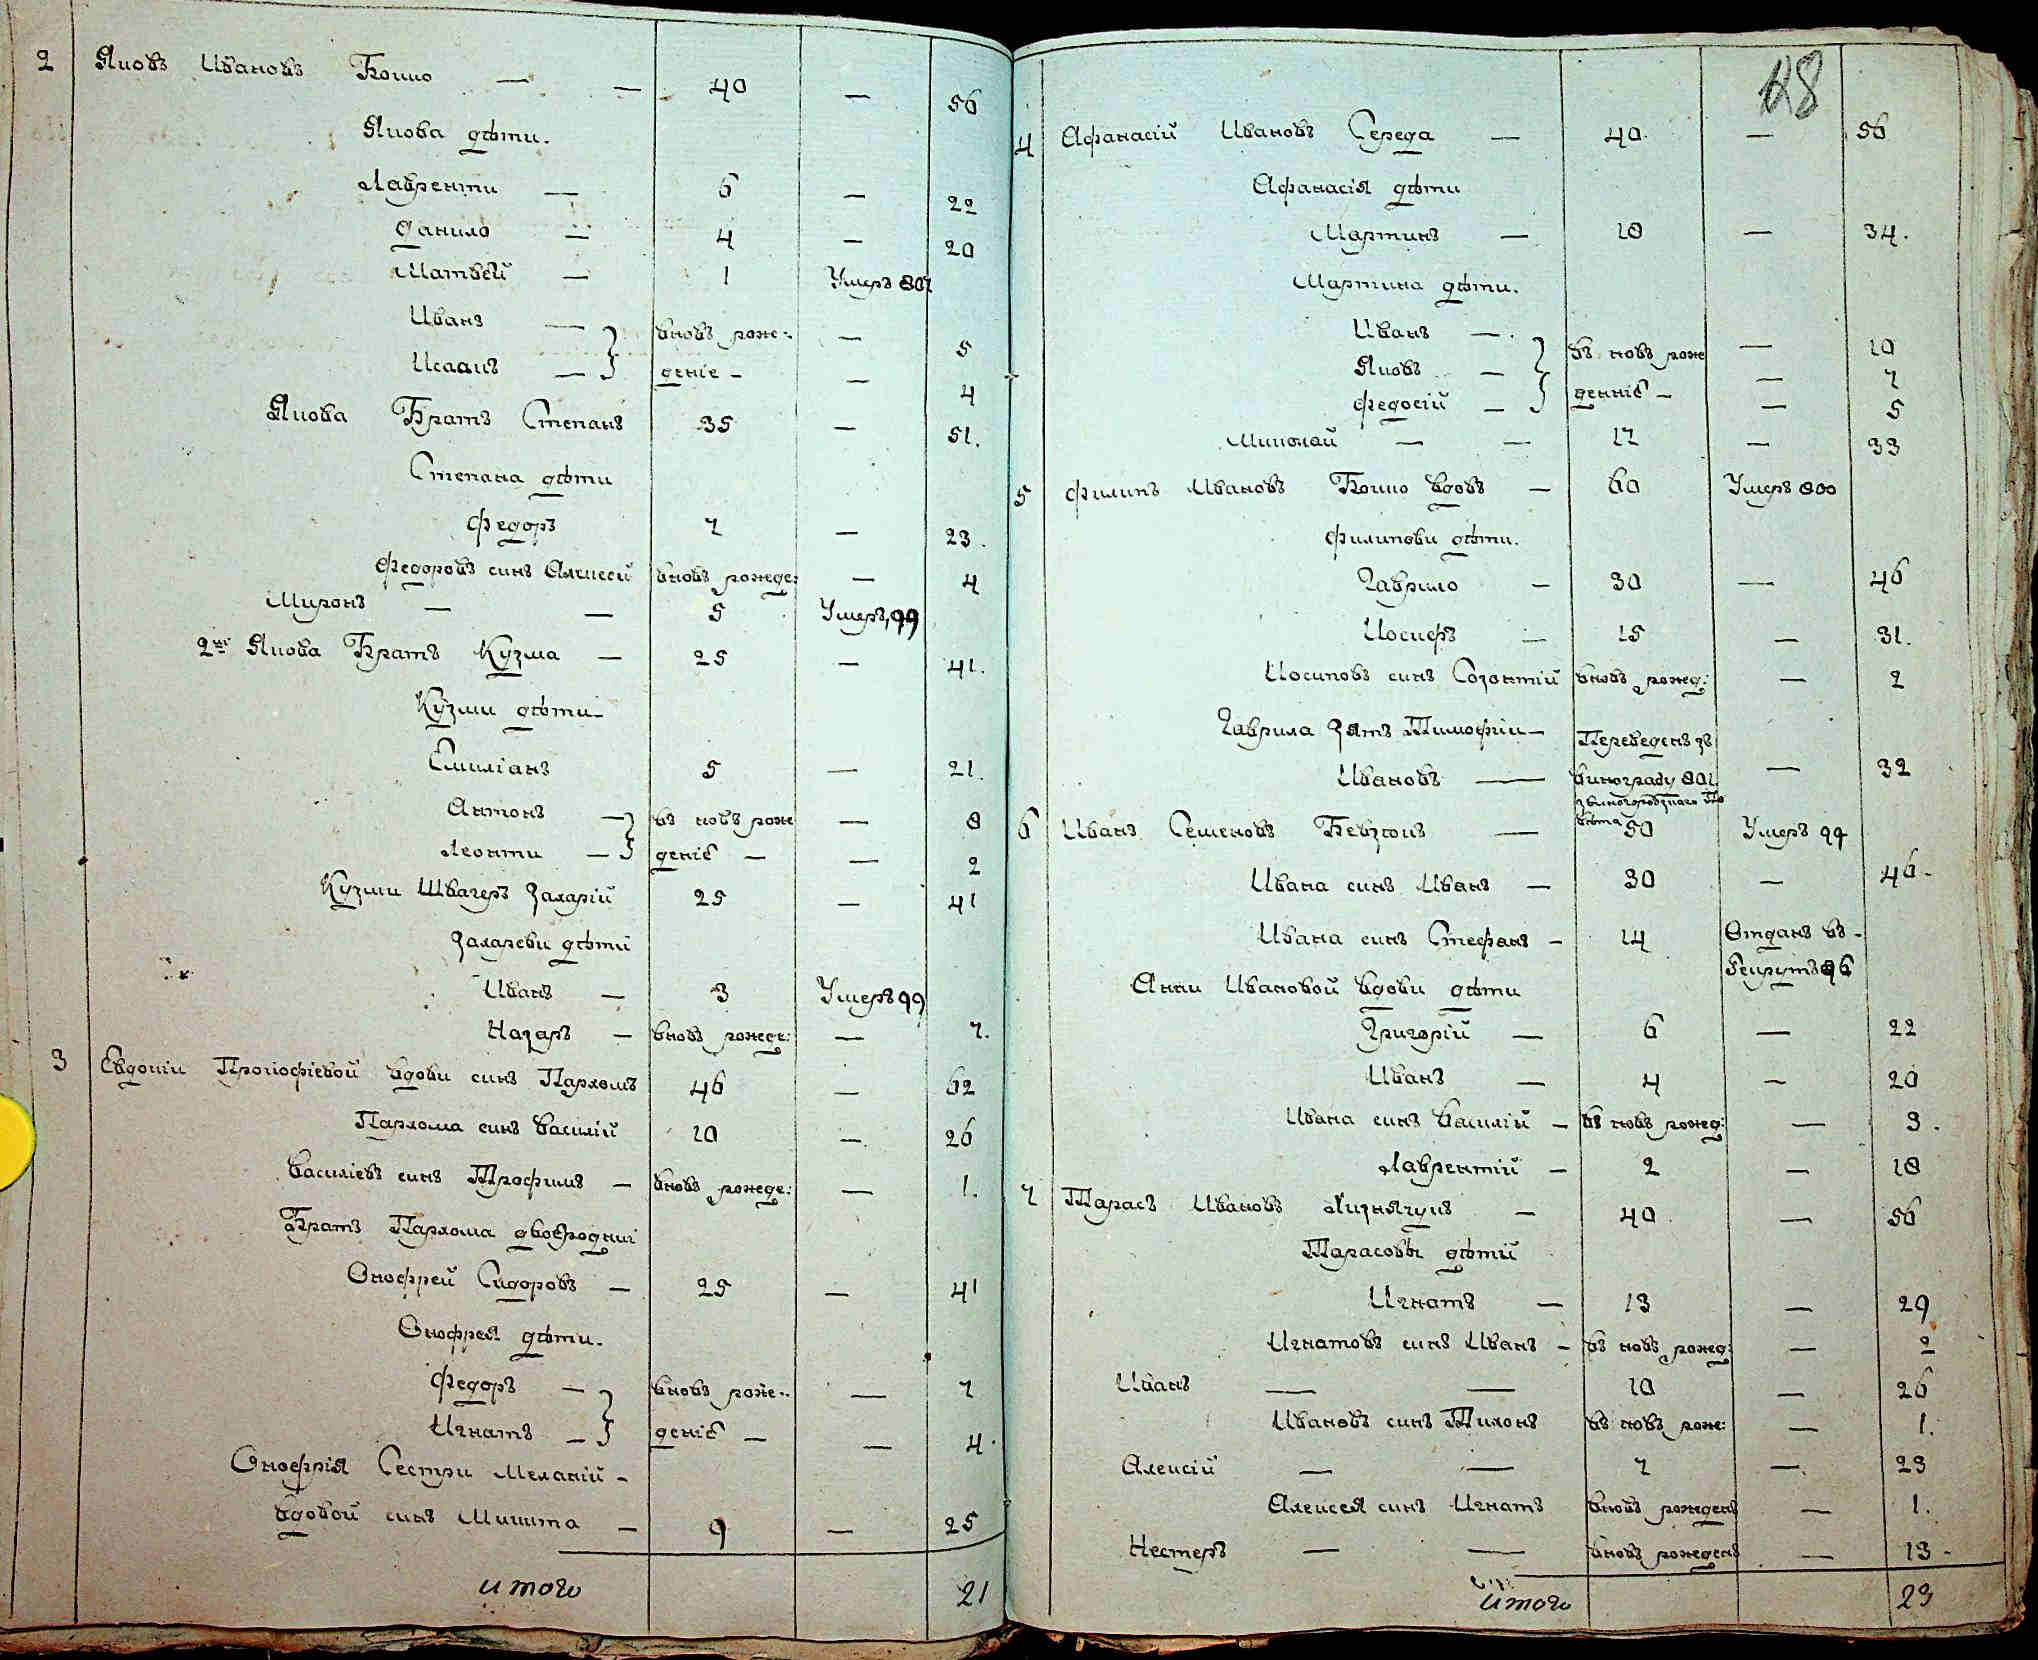 2 Яковъ Ивановъ Бойко — — 40 — 56
Якова дѣти.
Лаврентии — 6 — 22
Данило — 4 — 20
Матвей — 1 Умеръ 807
Иванъ — вновъ рож- — 5
Исаакъ — дение — — 4
Якова Братъ Степанъ 35 — 51.
Степана дѣти
Федоръ 7 — 23.
Федоровъ синъ Алексей вновъ рожде: — 4
Миронъ — — 5 Умеръ, 99
2й Якова Братъ Кузма — 25 — 41.
Кузми дѣти
Емилианъ 5 — 21.
Антонъ — въ новъ рож — 8
Леонти — дение — — 2
Кузми Швагеръ Захарий 25 — 41
Захареви дѣти
Иванъ — 3 Умеръ 99
Назаръ — вновъ рожде: — 7.
3 Евдокии Прокофиевой вдови синъ Пархомъ 46 — 62
Пархома синъ Василий 10 — 26
Василиевъ синъ Трофимъ — вновъ рожде: — 1.
Братъ Пархома двоюродний
Онофрей Сидоровъ — 25 — 41
Онофрея дѣти.
Федоръ — вновъ рож- — 7
Игнатъ — дение — — 4.
Онофрия Сестри Меланий —
вдовой синъ Микита — 9 — 25
итого 21
48
4 Афанасий Ивановъ Середа — 40 — 56
Афанасия дѣти
Мартинъ — 18 — 34.
Мартина дѣти.
Иванъ — въ новъ рож — 10
Яковъ — дение — — 7
Федосий — — 5
Миколай — — 17 — 33
5 Филипъ Ивановъ Бойко вдовъ — 60 Умеръ 800
Филипови дѣти.
Гаврило — 30 — 46
Иосифъ — 15 — 31.
Иосиповъ синъ Созонтий вновъ рожд: — 2
Гаврила Зять Тимофий — Переведенъ зъ
Ивановъ — винограду 801 — 32
6 Иванъ Семеновъ — 50 Умеръ 99
Ивана синъ Иванъ — 30 — 46.
Ивана синъ Стефанъ — 14 Отданъ въ -
Рекрутъ 96
Анни Ивановой вдови дѣти
Григорий — 6 — 22
Иванъ — 4 — 20
Ивана синъ Василий — въ новъ рожд: — 3.
Лаврентий — 2 — 18
7 Тарасъ Ивановъ — 40 — 56
Тарасови дѣтий
Игнатъ — 13 — 29
Игнатовъ синъ Иванъ — въ новъ рожд: — 2
Иванъ — — 10 — 26
Ивановъ синъ Тихонъ въ новъ рож: — 1.
Алексий — — 7 — 23
Алексея синъ Игнатъ вновъ рожденъ — 1.
Нестеръ — — вновъ рожденъ — 13 -
итого 23